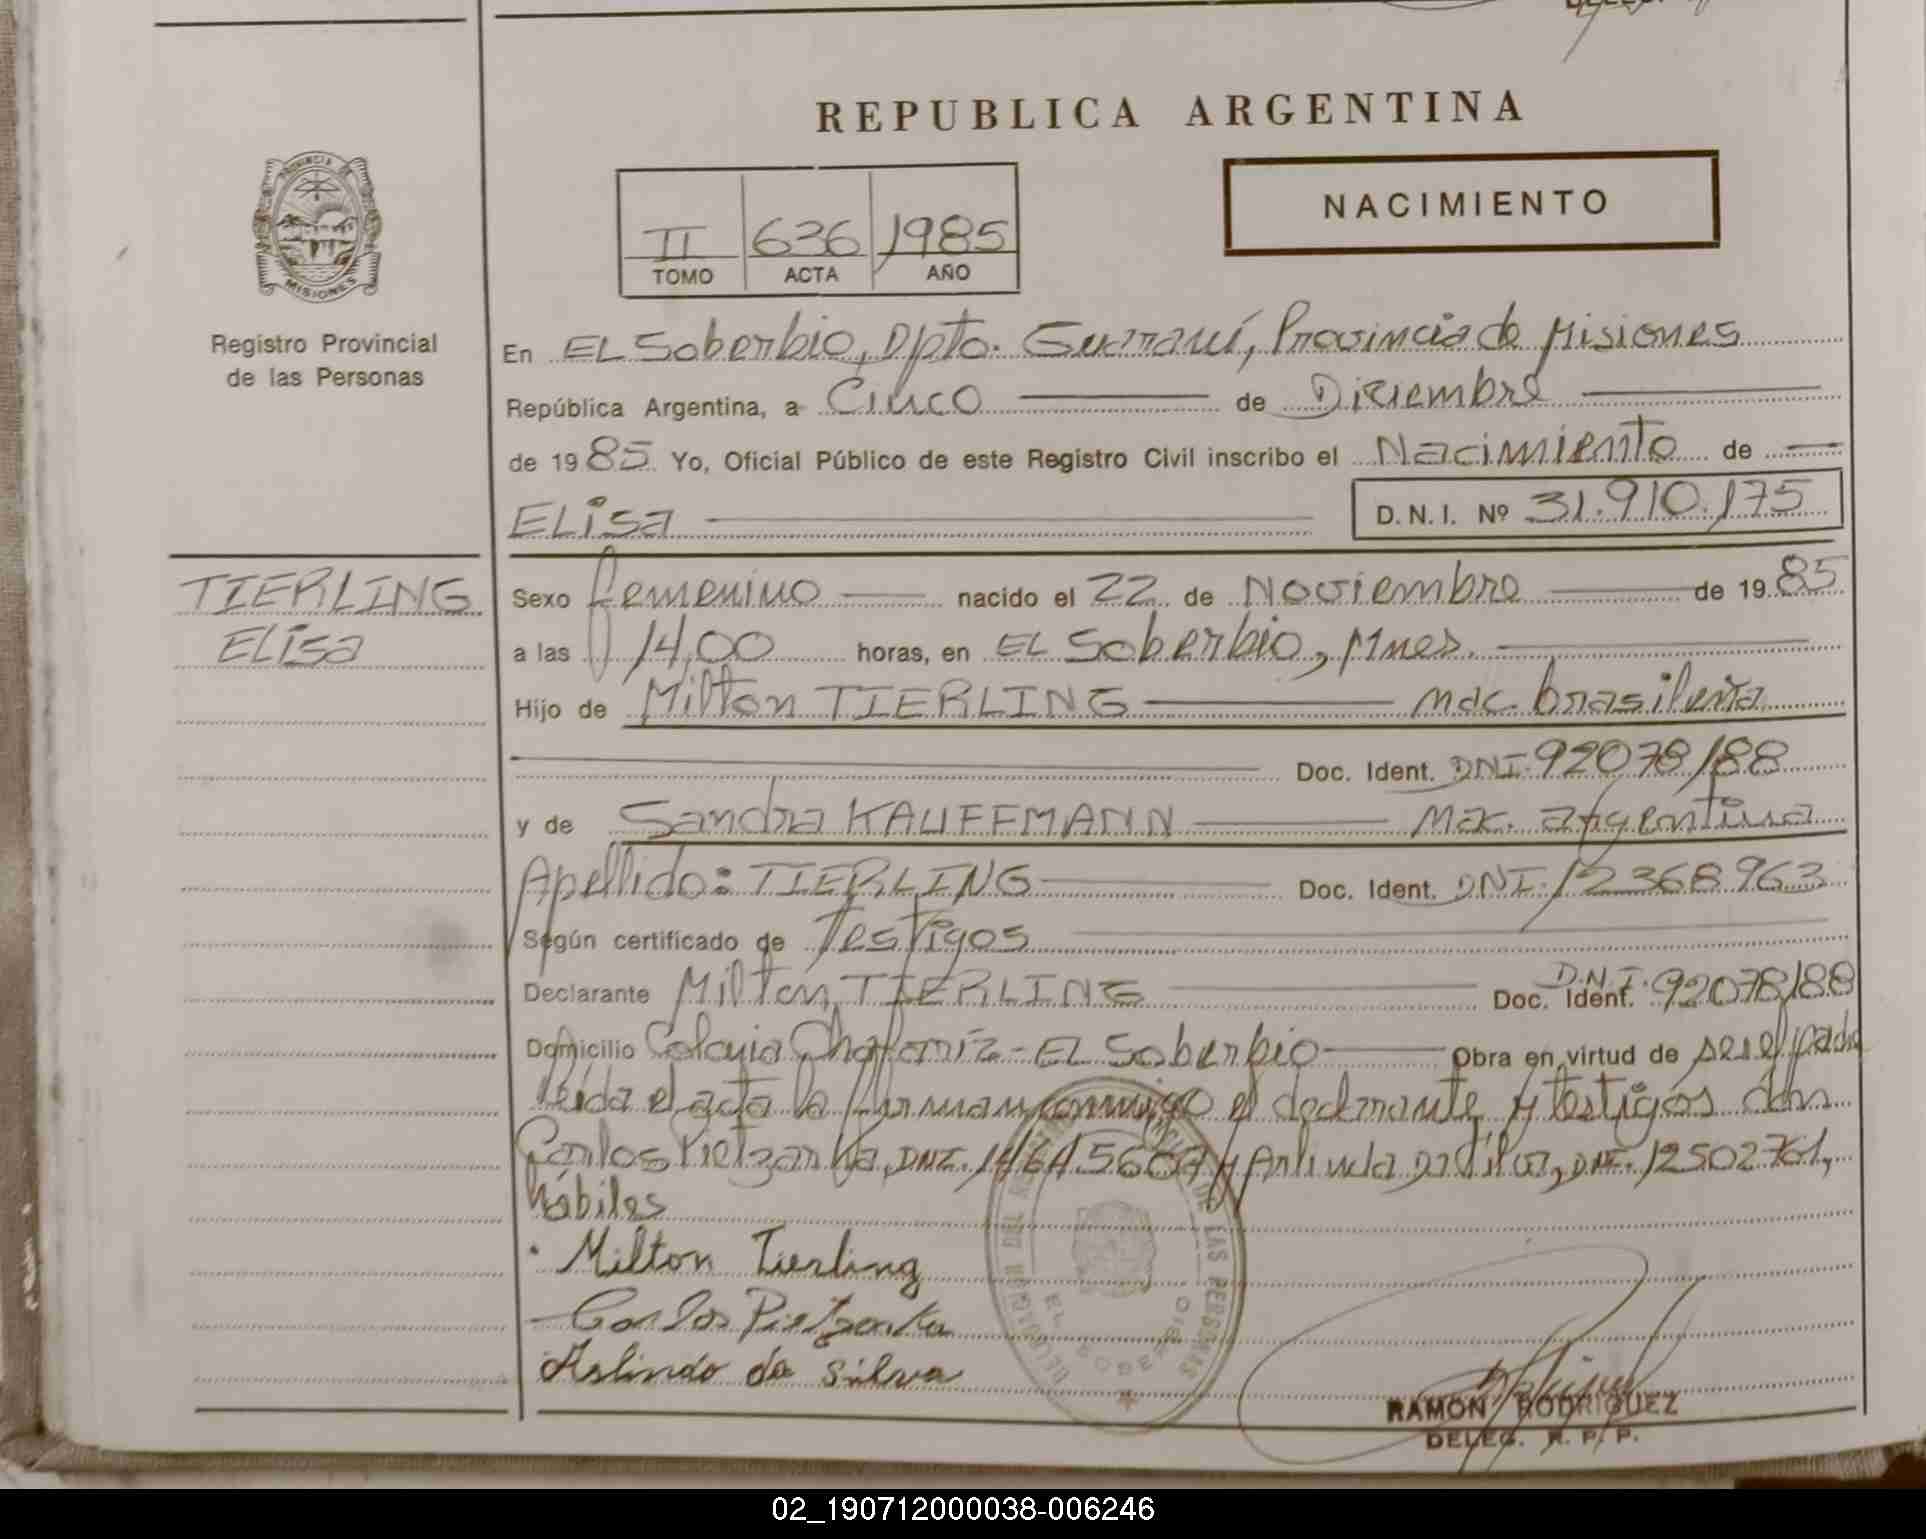 REPUBLICA ARGENTINA
PROVINCIA DE MISIONES
Registro Provincial
de las Personas
II 636 1985
TOMO ACTA AÑO
NACIMIENTO
En EL Soberbio, Dpto. Guaraní, Provincia de Misiones
República Argentina, a Cinco de Diciembre
de 1985 Yo, Oficial Público de este Registro Civil inscribo el Nacimiento de
ELisa D.N.I. Nº 31.910.175
TIERLING
ELisa
Sexo femenino nacido el 22 de Noviembre de 1985
a las 14,00 horas, en EL Soberbio, Mnes.
Hijo de Milton TIERLING nac. brasileña
Doc. Ident. DNI. 92078188
y de Sandra KAUFFMANN nac. argentina
Apellido: TIERLING Doc. Ident. DNI. 12368963
Según certificado de Testigos
Declarante Milton TIERLING Doc. Ident. D.N.I. 92078188
Domicilio Colonia EL Soberbio Obra en virtud de ser el padre
leída el acta la firman conmigo el declarante y testigos don
Carlos Pietzanka, DNI. y Arlindo Da Silva, DNI. 12502761,
hábiles
Milton Tierling
Carlos Pietzanka
Aslindo da Silva
DELEGACION DEL REGISTRO PROVINCIAL DE LAS PERSONAS
EL SOBERBIO
RAMON RODRIGUEZ
DELEG. R. P. P.
02_190712000038-006246